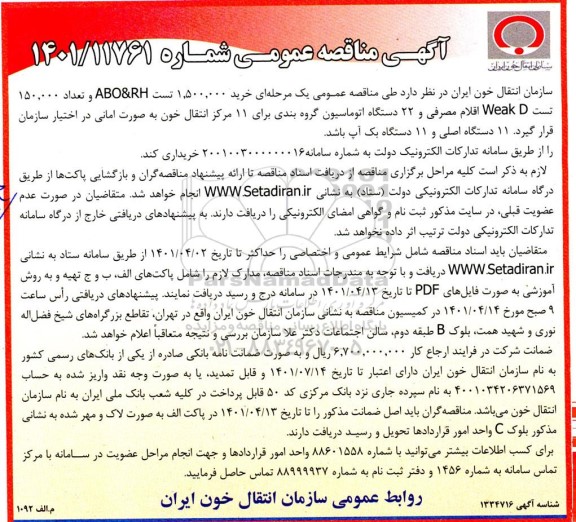 آگهی مناقصه عمومی شماره ۱۴۰۱/۱۱۷۶۱
سازمان انتقال خون ایران
سازمان انتقال خون ایران در نظر دارد طی مناقصه عمومی یک مرحله‌ای خرید ۱,۵۰۰,۰۰۰ تست ABO&RH و تعداد ۱۵۰,۰۰۰
تست Weak D اقلام مصرفی و ۲۲ دستگاه اتوماسیون گروه بندی برای ۱۱ مرکز انتقال خون به صورت امانی در اختیار سازمان
قرار گیرد. ۱۱ دستگاه اصلی و ۱۱ دستگاه بک آپ باشد.
را از طریق سامانه تدارکات الکترونیک دولت به شماره سامانه ۲۰۰۱۰۰۳۰۰۰۰۰۰۱۶ خریداری کند.
لازم به ذکر است کلیه مراحل برگزاری مناقصه از دریافت اسناد مناقصه تا ارائه پیشنهاد مناقصه‌گران و بازگشایی پاکت‌ها از طریق
درگاه سامانه تدارکات الکترونیکی دولت (ستاد) به نشانی WWW.Setadiran.ir انجام خواهد شد. متقاضیان در صورت عدم
عضویت قبلی، در سایت مذکور ثبت نام و گواهی امضای الکترونیکی را دریافت دارند. به پیشنهادهای دریافتی خارج از درگاه سامانه
تدارکات الکترونیکی دولت ترتیب اثر داده نخواهد شد.
متقاضیان باید اسناد مناقصه شامل شرایط عمومی و اختصاصی را حداکثر تا تاریخ ۱۴۰۱/۰۴/۰۲ از طریق سامانه ستاد به نشانی
WWW.Setadiran.ir دریافت و با توجه به مندرجات اسناد مناقصه، مدارک لازم را شامل پاکت‌های الف، ب و ج تهیه و به روش
آموزشی به صورت فایل‌های PDF تا تاریخ ۱۴۰۱/۰۴/۱۳ در سامانه درج و رسید دریافت نمایند. پیشنهادهای دریافتی رأس ساعت
۹ صبح مورخ ۱۴۰۱/۰۴/۱۴ در کمیسیون مناقصه به نشانی سازمان انتقال خون ایران واقع در تهران، تقاطع بزرگراه‌های شیخ فضل‌اله
نوری و شهید همت، بلوک B طبقه دوم، سالن اجتماعات دکتر علا سازمان بررسی و نتیجه متعاقباً اعلام خواهد شد.
ضمانت شرکت در فرایند ارجاع کار ۶,۷۰۰,۰۰۰,۰۰۰ ریال و به صورت ضمانت نامه بانکی صادره از یکی از بانک‌های رسمی کشور
به نام سازمان انتقال خون ایران دارای اعتبار تا تاریخ ۱۴۰۱/۰۷/۱۴ و قابل تمدید، یا به صورت وجه نقد واریز شده به حساب
۴۰۰۱۰۳۴۲۰۶۳۷۱۵۶۹ به نام سپرده جاری نزد بانک مرکزی کد ۵۰ قابل پرداخت در کلیه شعب بانک ملی ایران به نام سازمان
انتقال خون می‌باشد. مناقصه‌گران باید اصل ضمانت مذکور را تا تاریخ ۱۴۰۱/۰۴/۱۳ در پاکت الف به صورت لاک و مهر شده به نشانی
مذکور بلوک C واحد امور قراردادها تحویل و رسید دریافت دارند.
برای کسب اطلاعات بیشتر می‌توانید با شماره ۸۸۶۰۱۵۵۸ واحد امور قراردادها و جهت انجام مراحل عضویت در سامانه با مرکز
تماس سامانه به شماره ۱۴۵۶ و دفتر ثبت نام به شماره ۸۸۹۹۹۹۳۷ تماس حاصل فرمایید.
روابط عمومی سازمان انتقال خون ایران
شناسه آگهی ۱۳۳۴۷۱۶
م.الف ۱۰۹۲
ParsNamadData